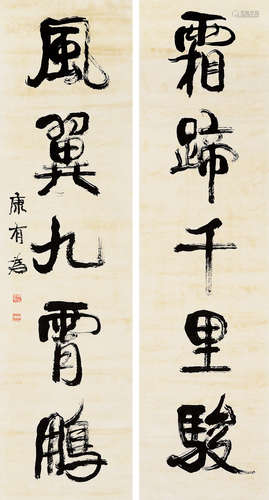 霜蹄千里駿
風翼九霄鵬
康有為